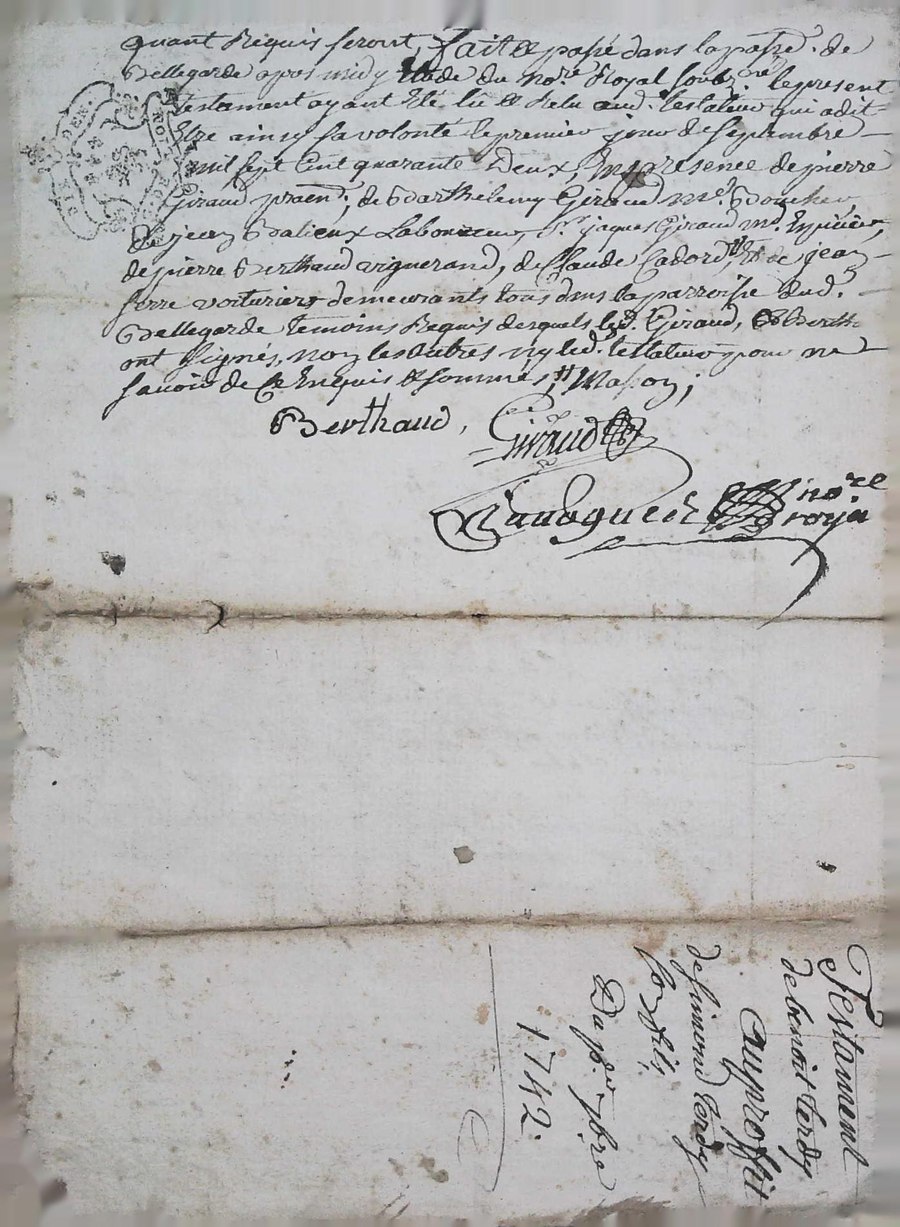 quant Requis seront, fait & passé dans la parre. de
Bellegarde apres midy Etude du nore. Royal soubzné. le present
testament ayant Eté lû & Relu aud. testateur qui a dit
Etre ainsy sa volonté le premier jour de septembre
mil sept Cent quarante Deux, En presence de pierre
Giraud praen., de Barthelemy Giraud me. Boucher,
de jean Balieux Laboureur, Sr. jaques Giraud md. Epicier,
de pierre Berthaud vigneron, de Claude Cadord, & de jean
serre voiturier demeurants tous dans la parroisse dud.
Bellegarde temoins Requis desquels led. Giraud, & Berth
ont signés, non les autres ny led. testateur pour ne
savoir de Ce Enquis & sommés,
Berthaud, Giraud
nore
royal
Testament
de benoit terdy
au proffit
de simond terdy
so fils
Du pr. 7bre
1742.